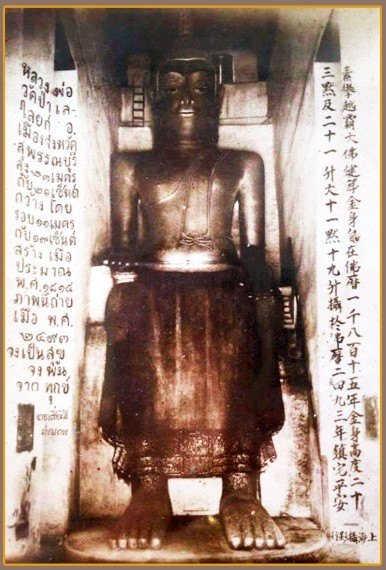 หลวงพ่อ
วัดป่าเล-
ไลยก์ อ.
เมืองจังหวัด
สุพรรณบุรี
สูง ๒๓ เมตร
กับ ๒๑ เซ็นต์
กว้าง โดย
รอบ ๑๑ เมตร
กับ ๑๙ เซ็นติ์
สร้าง เมื่อ
ประมาณ
พ.ศ. ๑๘๑๕
ภาพนี้ถ่าย
เมื่อ พ.ศ.
๒๔๙๓
จงเป็นสุข
จงพ้น
จาก ทุกข์
素攀越霸大佛健年金身 在佛曆一千八百十五年金身高度二十
三點及二十一 升丈十一點十九升攝於佛曆二四九三年鎮宅平安
上海攝影